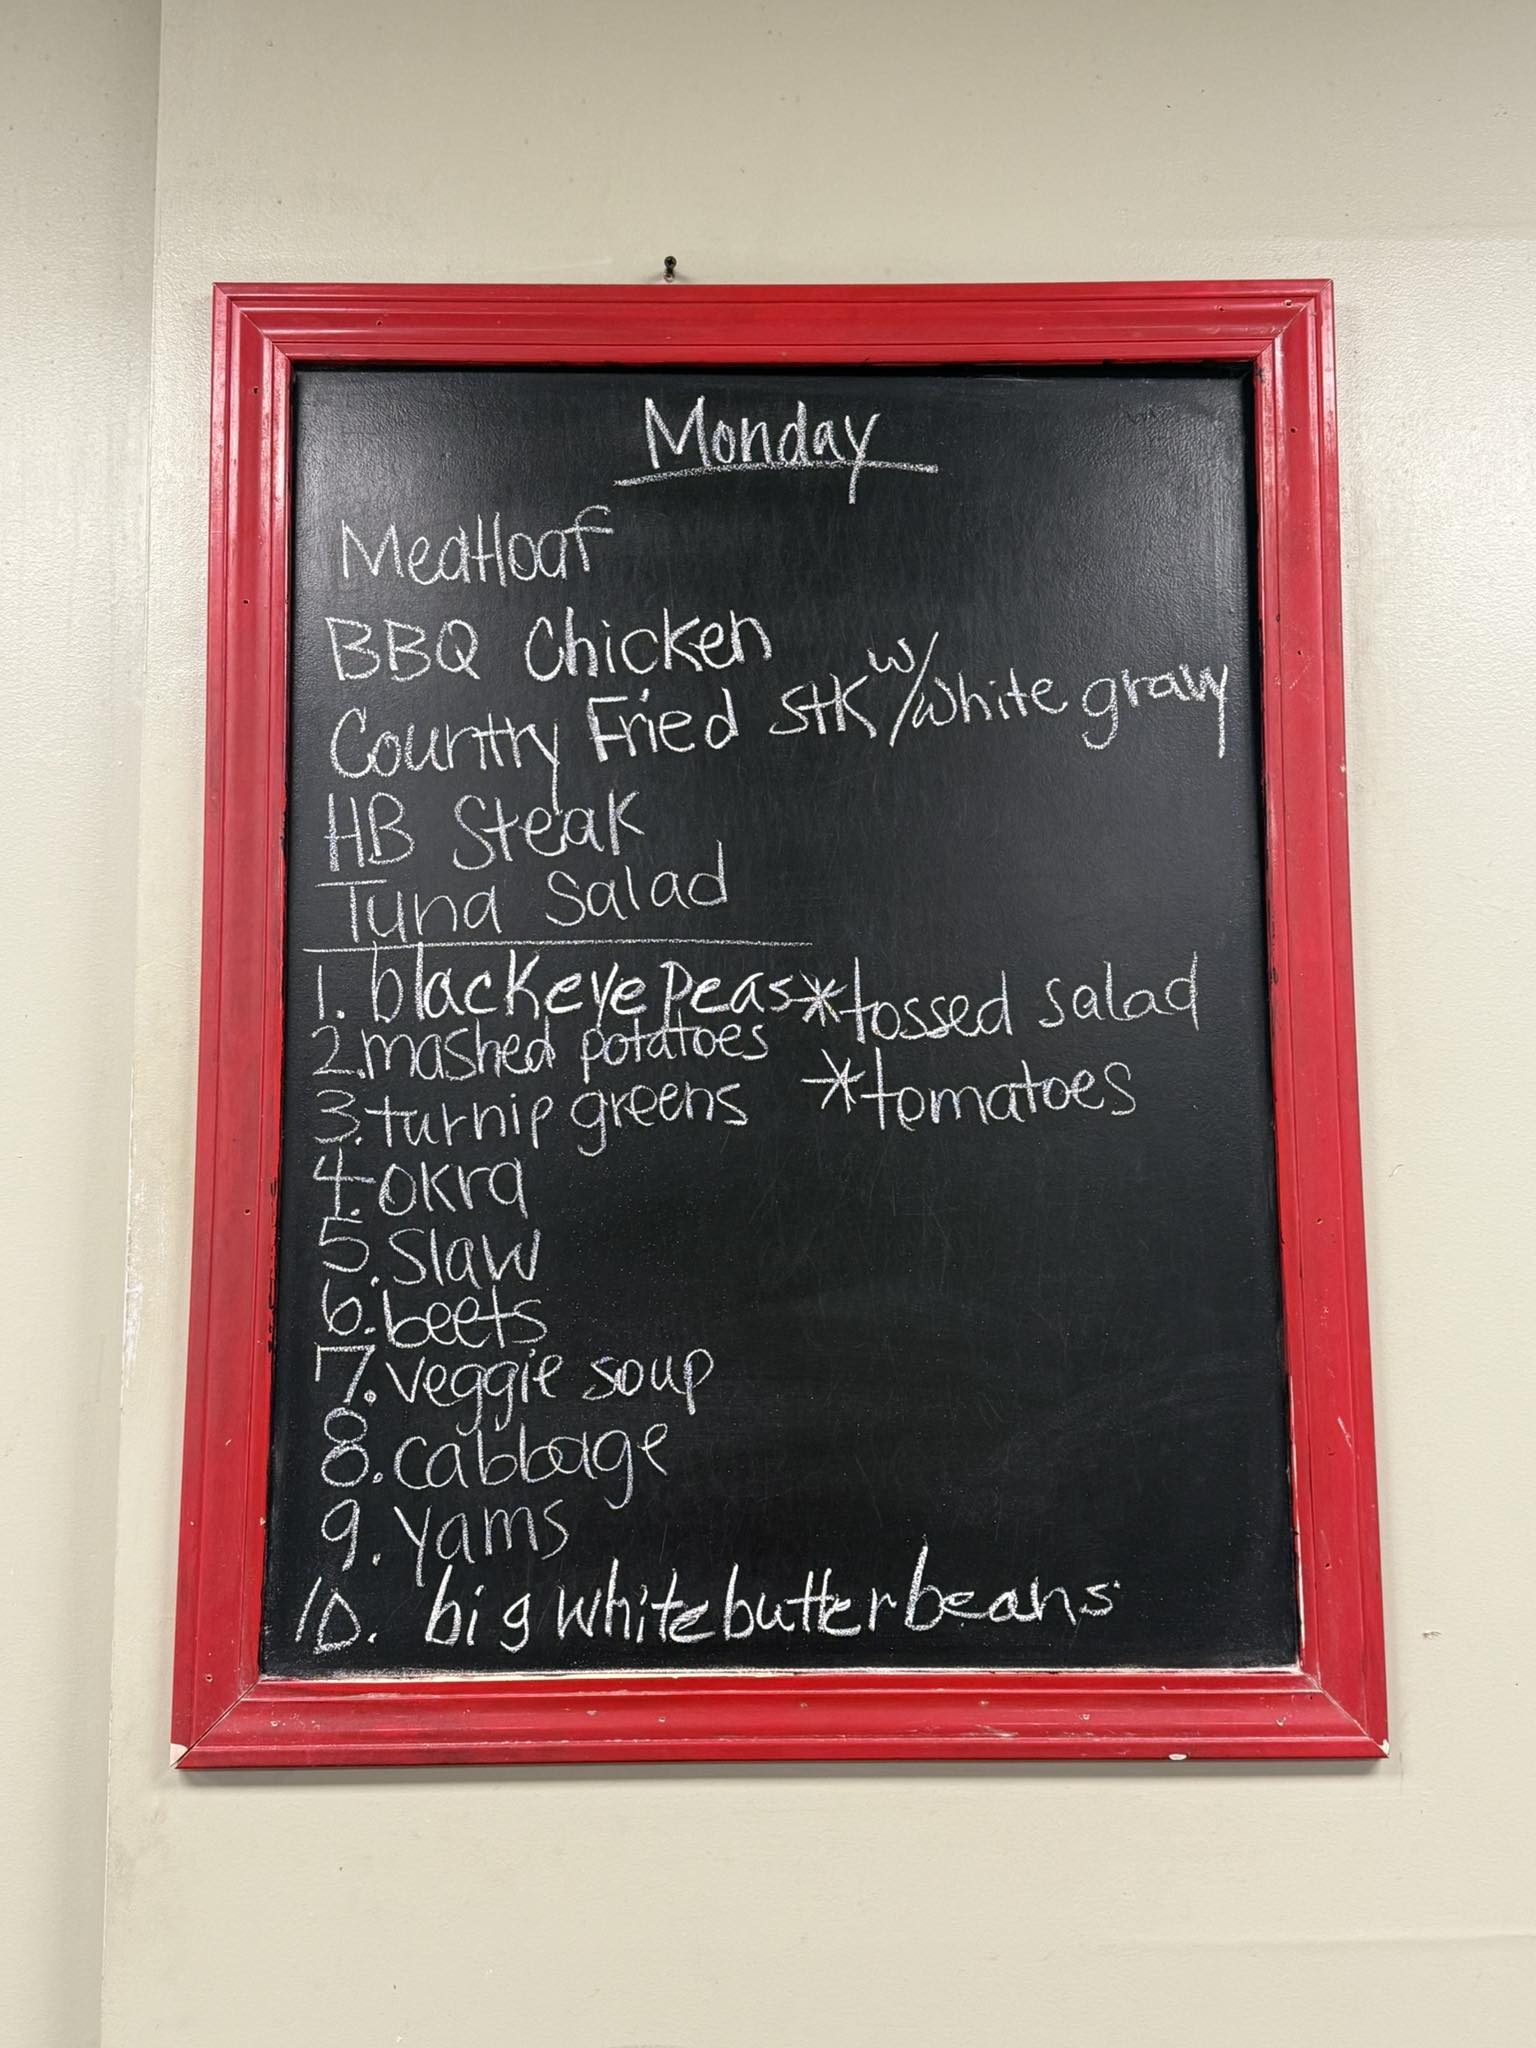 Monday
Meatloaf
BBQ Chicken
Country Fried Stk w/white gravy
HB Steak
Tuna Salad
1. blackeye peas *tossed salad
2. mashed potatoes *tomatoes
3. turnip greens
4. okra
5. slaw
6. beets
7. veggie soup
8. cabbage
9. yams
10. big white butter beans